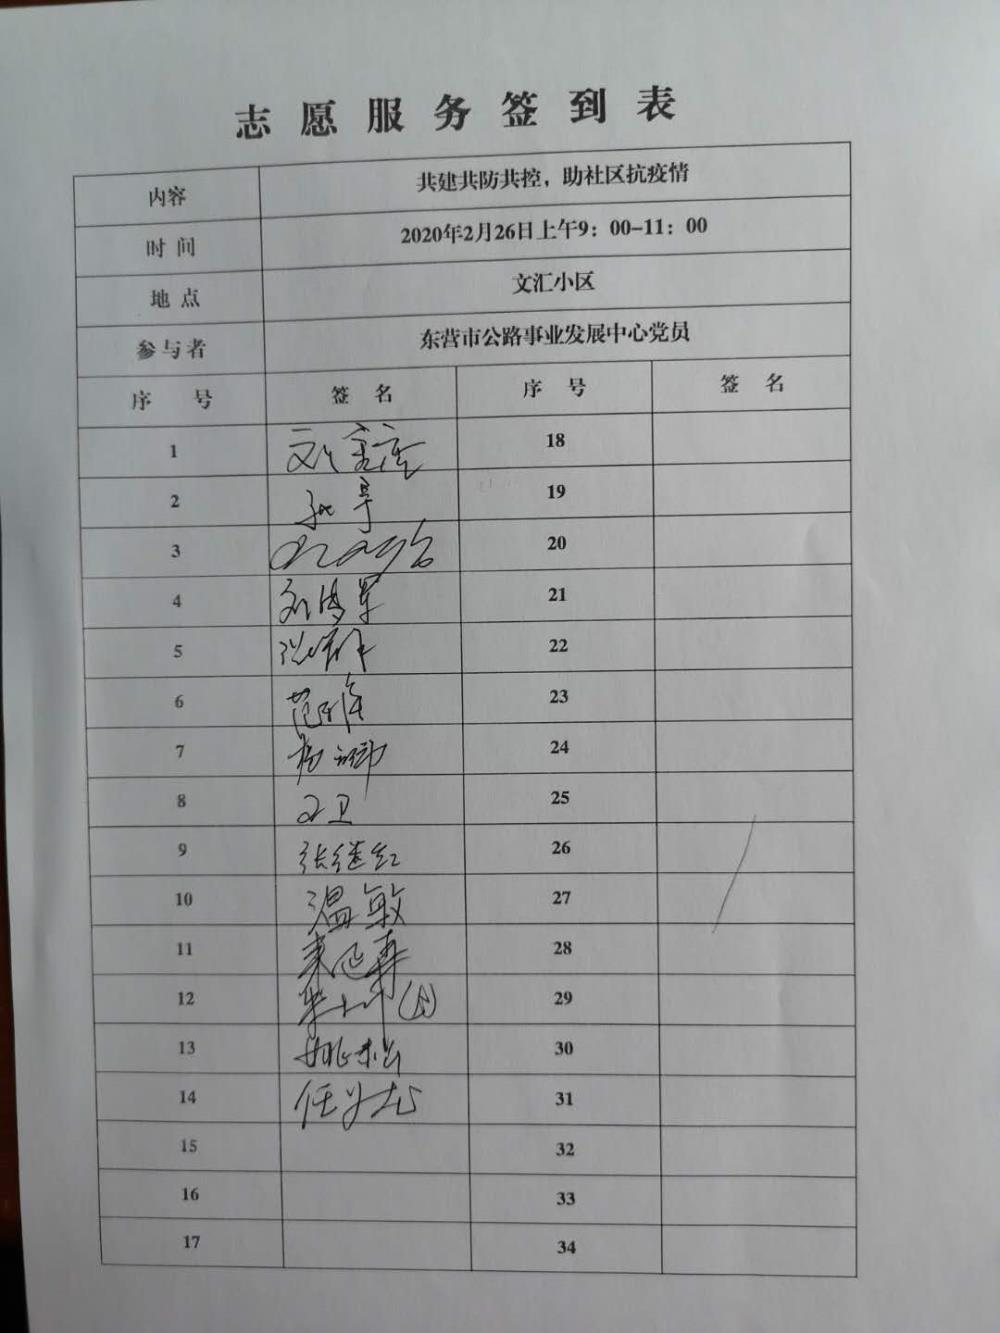 志愿服务签到表
内容 共建共防共控，助社区抗疫情
时间 2020年2月26日上午9：00-11：00
地点 文汇小区
参与者 东营市公路事业发展中心党员
序号 签名 序号 签名
1 18
2 19
3 20
4 21
5 22
6 23
7 24
8 25
9 张继红 26
10 温敏 27
11 28
12 29
13 姚松 30
14 31
15 32
16 33
17 34